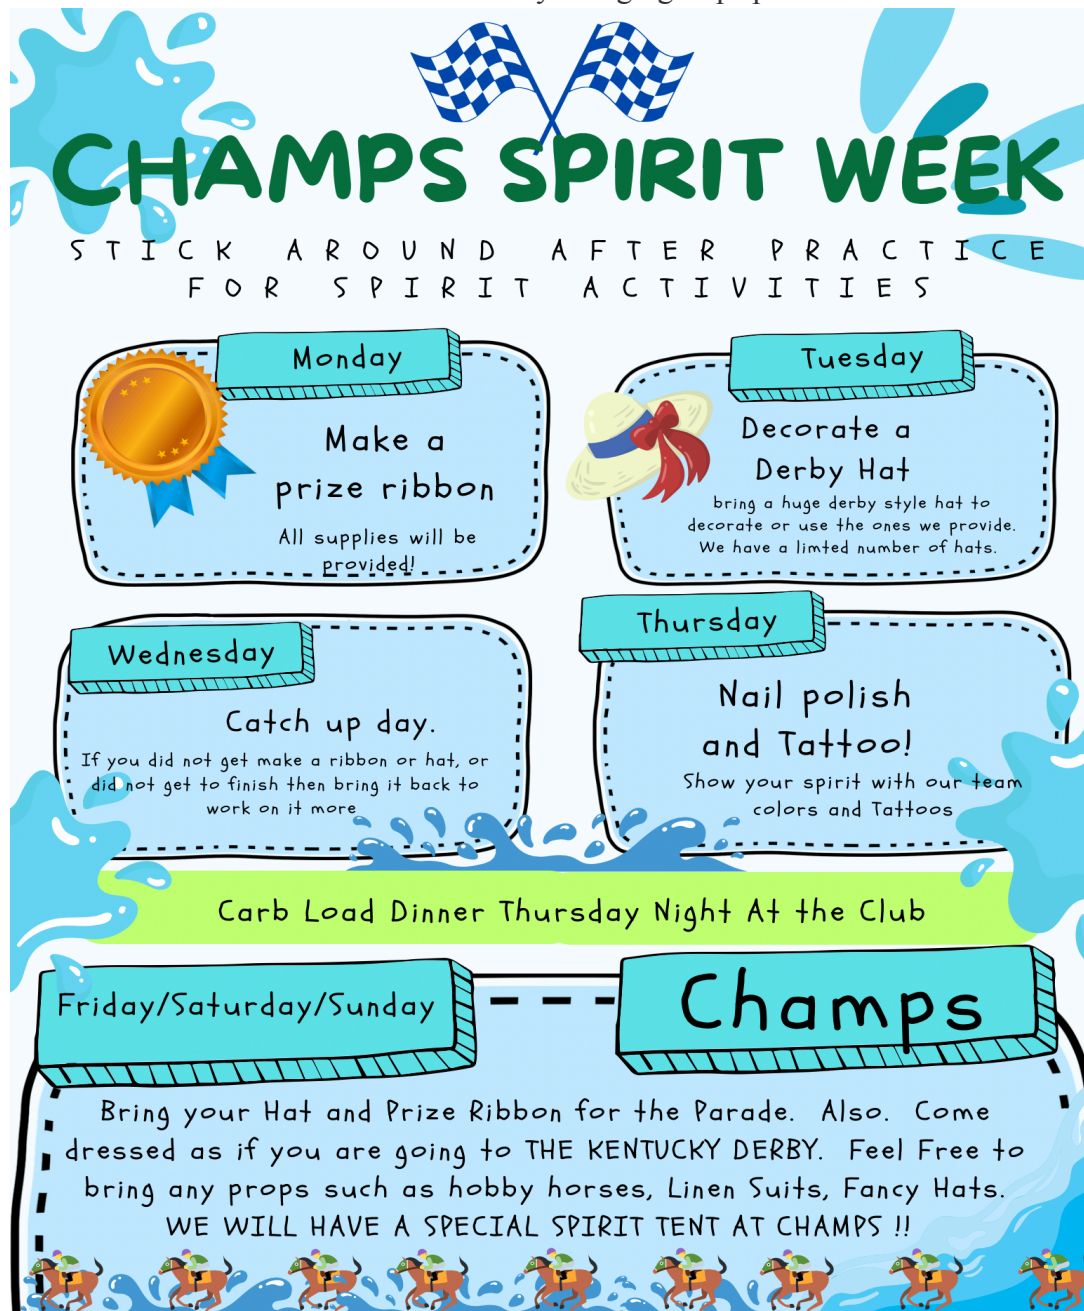 CHAMPS SPIRIT WEEK
STICK AROUND AFTER PRACTICE
FOR SPIRIT ACTIVITIES
Monday
Make a
prize ribbon
All supplies will be
provided!
Tuesday
Decorate a
Derby Hat
bring a huge derby style hat to
decorate or use the ones we provide.
We have a limted number of hats.
Wednesday
Catch up day.
If you did not get make a ribbon or hat, or
did not get to finish then bring it back to
work on it more
Thursday
Nail polish
and Tattoo!
Show your spirit with our team
colors and Tattoos
Carb Load Dinner Thursday Night At the Club
Friday/Saturday/Sunday
Champs
Bring your Hat and Prize Ribbon for the Parade. Also. Come
dressed as if you are going to THE KENTUCKY DERBY. Feel Free to
bring any props such as hobby horses, Linen Suits, Fancy Hats.
WE WILL HAVE A SPECIAL SPIRIT TENT AT CHAMPS !!